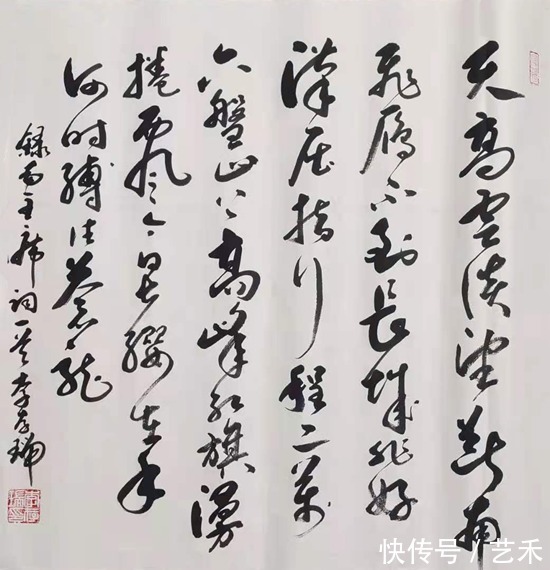 天高雲淡望断南
飛雁不到長城非好
漢屈指行程二萬
六盤山上高峰红旗漫
捲西风今日長缨在手
何时缚住蒼龙
録毛主席词一首 李
快传号/艺禾